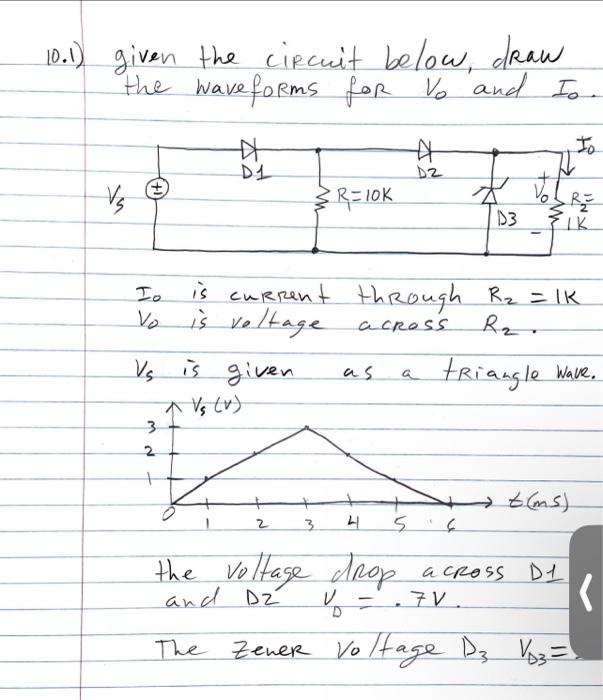 10.1) given the circuit below, draw
the waveforms for Vo and Io.
Io
D1
D2
Vs
R=10K
D3
+
Vo
-
R2=
1K
Io is current through R2 = 1K
Vo is voltage across R2.
Vs is given as a triangle wave.
Vs (V)
3
2
1
0
1 2 3 4 5 6
t(ms)
the voltage drop across D1
and D2 VD = .7V.
The Zener Voltage D3 VD3=